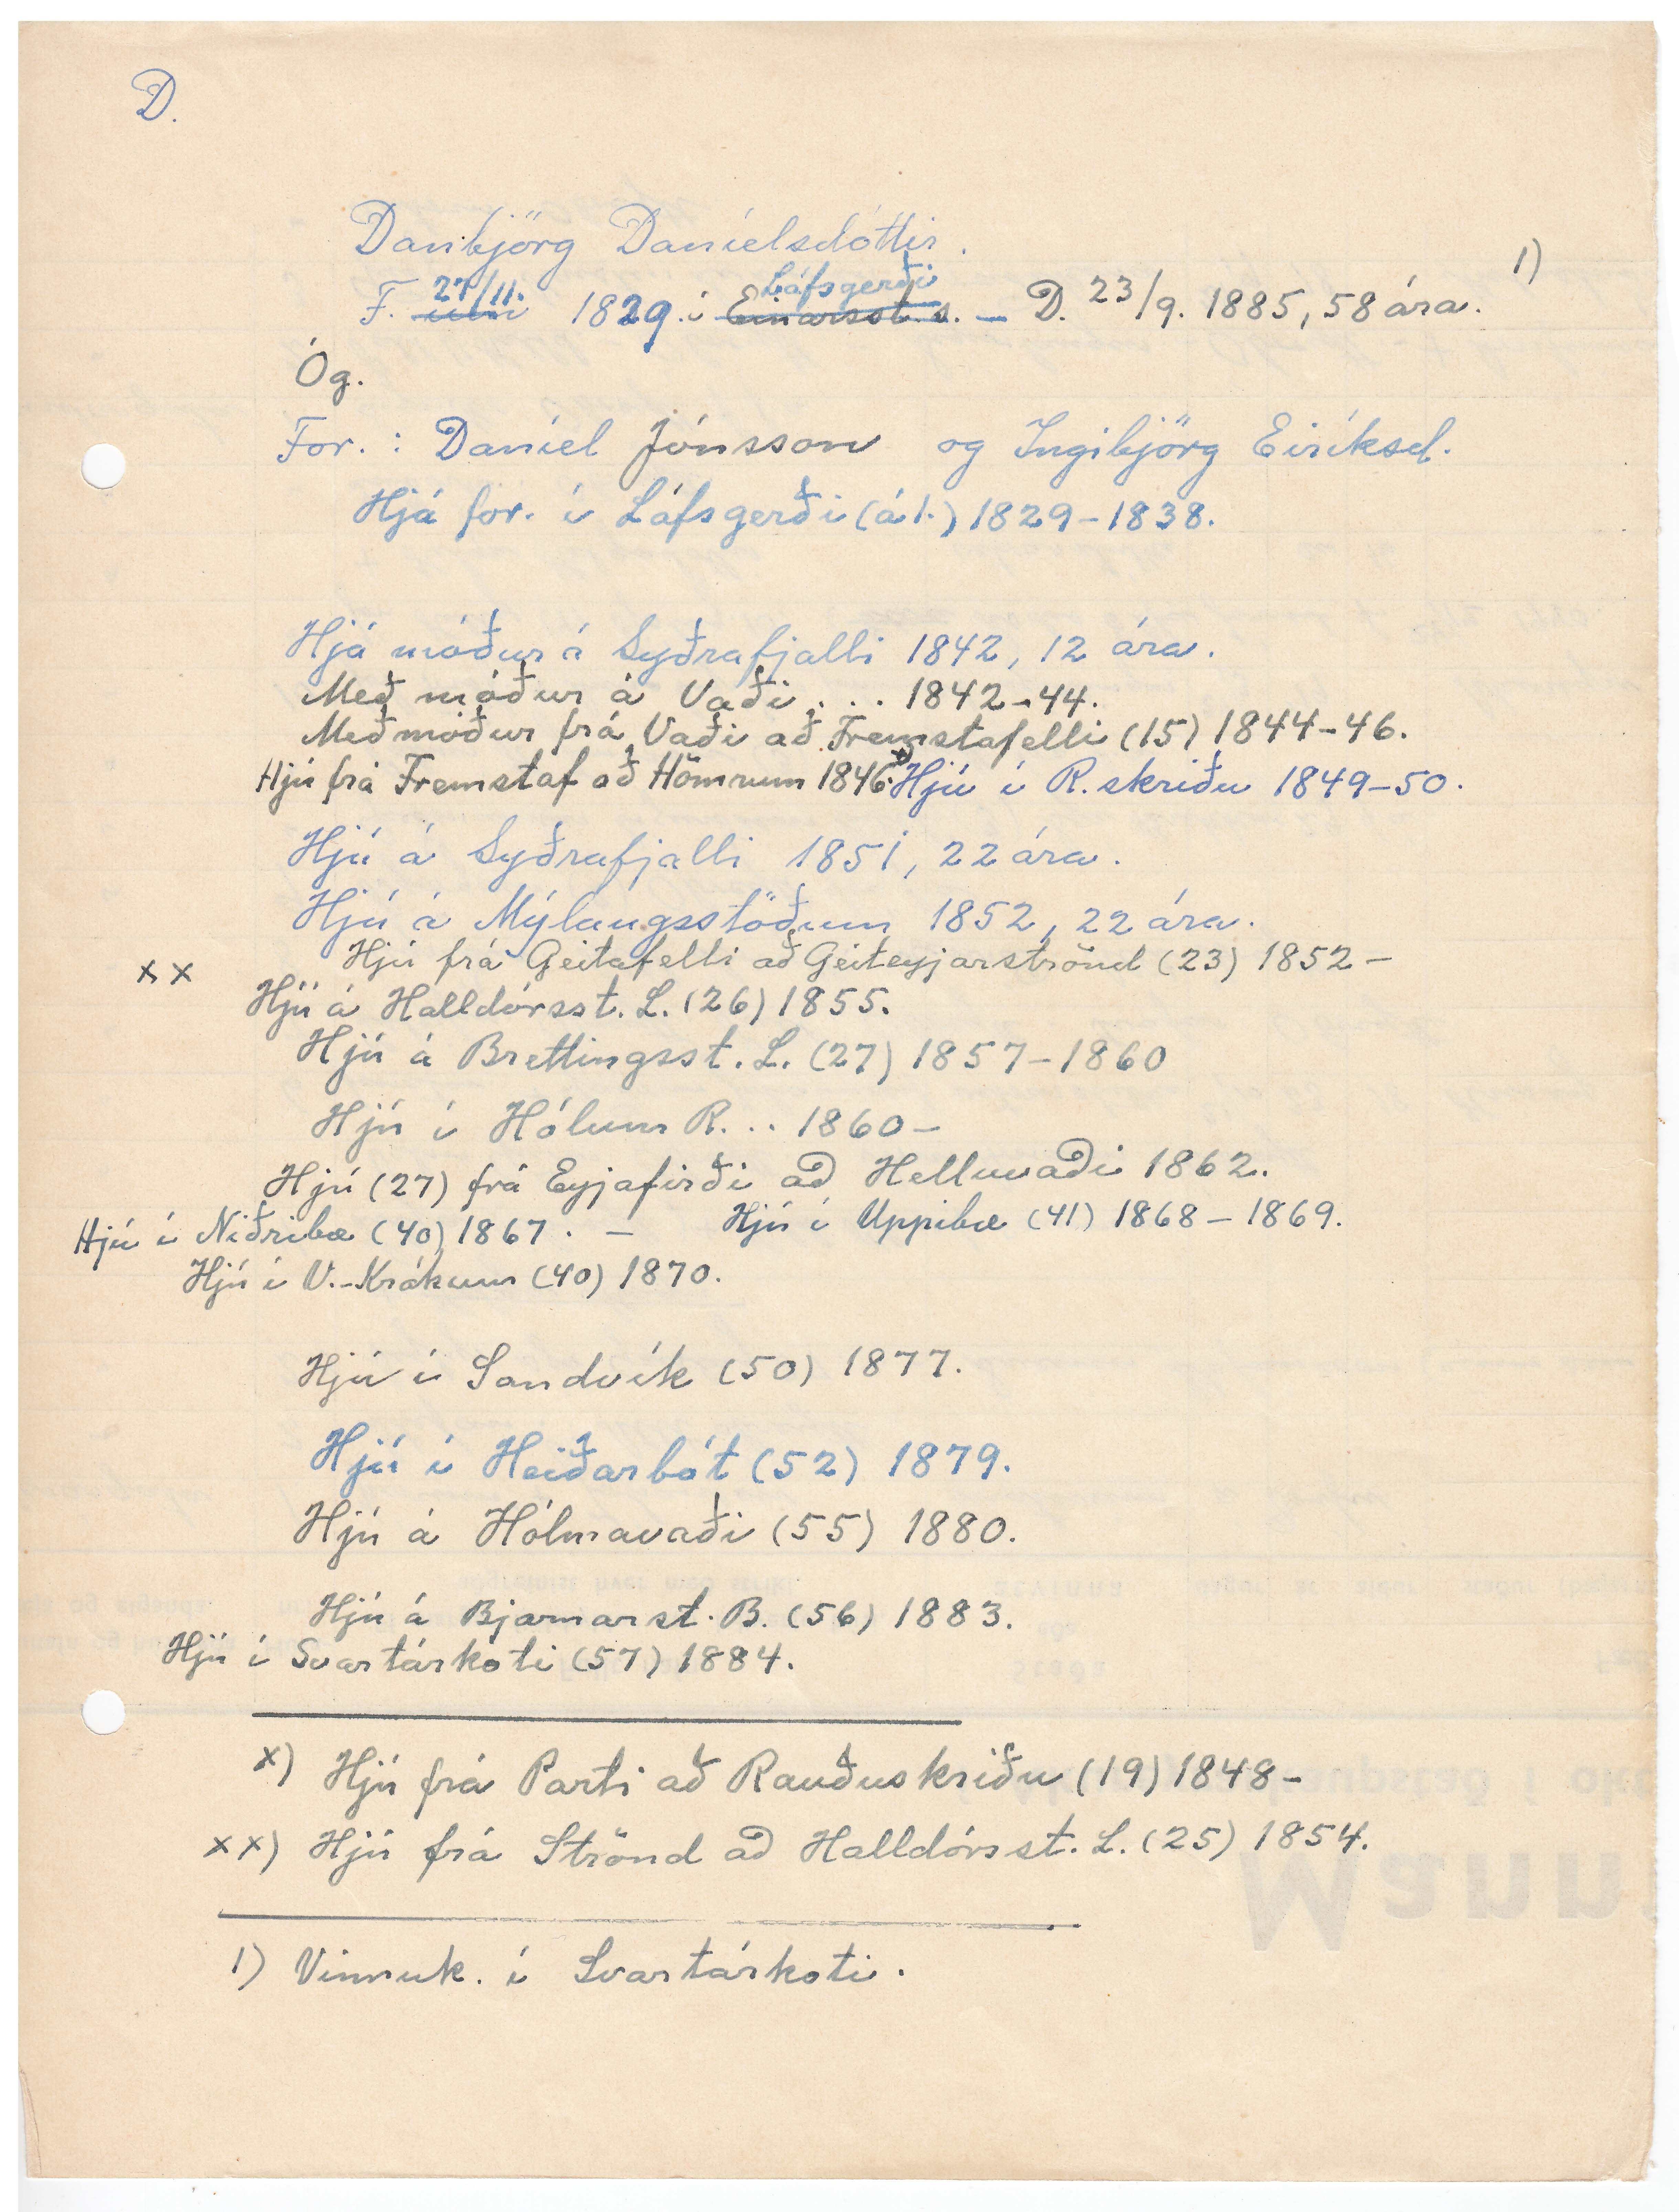 D.
Danbjörg Daníelsdóttir.
F. 27/11. 1829 í Láfsgerði Einarsst.s. — D. 23/9. 1885, 58 ára. 1)
Óg.
For.: Daníel Jónsson og Ingibjörg Eiríksd.
Hjá for. í Láfsgerði (á 1.) 1829-1838.
Hjá móður á Syðrafjalli 1842, 12 ára.
Með móður á Vaði ... 1842-44.
Með móður frá Vaði að Fremstafelli (15) 1844-46.
Hjú frá Fremstaf að Hömrum 1846. x) Hjú í R.skriðu 1849-50.
Hjú á Syðrafjalli 1851, 22 ára.
Hjú á Mýlaugsstöðum 1852, 22 ára.
Hjú frá Geitafelli að Geiteyjarströnd (23) 1852-
xx Hjú á Halldórsst. L. (26) 1855.
Hjú á Brettingsst. L. (27) 1857-1860
Hjú í Hólum R. .. 1860-
Hjú (27) frá Eyjafirði að Helluvaði 1862.
Hjú í Niðribæ (40) 1867. - Hjú í Uppibæ (41) 1868-1869.
Hjú í V.-Krákum (40) 1870.
Hjú í Sandvík (50) 1877.
Hjú í Heiðarbót (52) 1879.
Hjú á Hólmavaði (55) 1880.
Hjú á Bjarnarst. B. (56) 1883.
Hjú í Svartárkoti (57) 1884.
x) Hjú frá Parti að Rauðuskriðu (19) 1848-
xx) Hjú frá Strönd að Halldórsst. L. (25) 1854.
1) Vinnuk. í Svartárkoti.